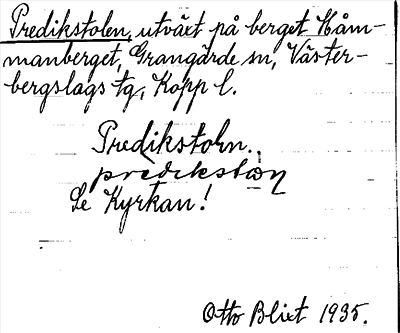 Predikstolen, utväxt på berget Håm-
manberget, Grangärde sn, Väster-
bergslags tg, Kopp l.
Predikstoln.
predikstɷn
Se Kyrkan!
Otto Blixt 1935.